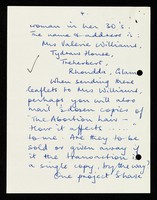 woman in her 30's.
The name & address is:
Mrs Valerie Williams,
Tydraw House,
Treherbert,
Rhondda, Glam
When sending these
leaflets to Mrs Williams,
perhaps you will also
mail 2 down copies of
"The Abortion law -
How it affects
to me. Are they to be
sold or given away if
it the transaction is
a single copy by the way?
One project I have